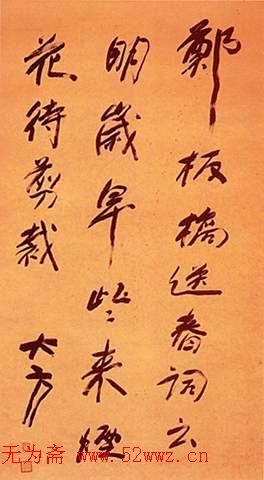 鄭板橋送春词云
明歲早些来煙
花待剪裁
大方
无为斋 www.52wwz.cn